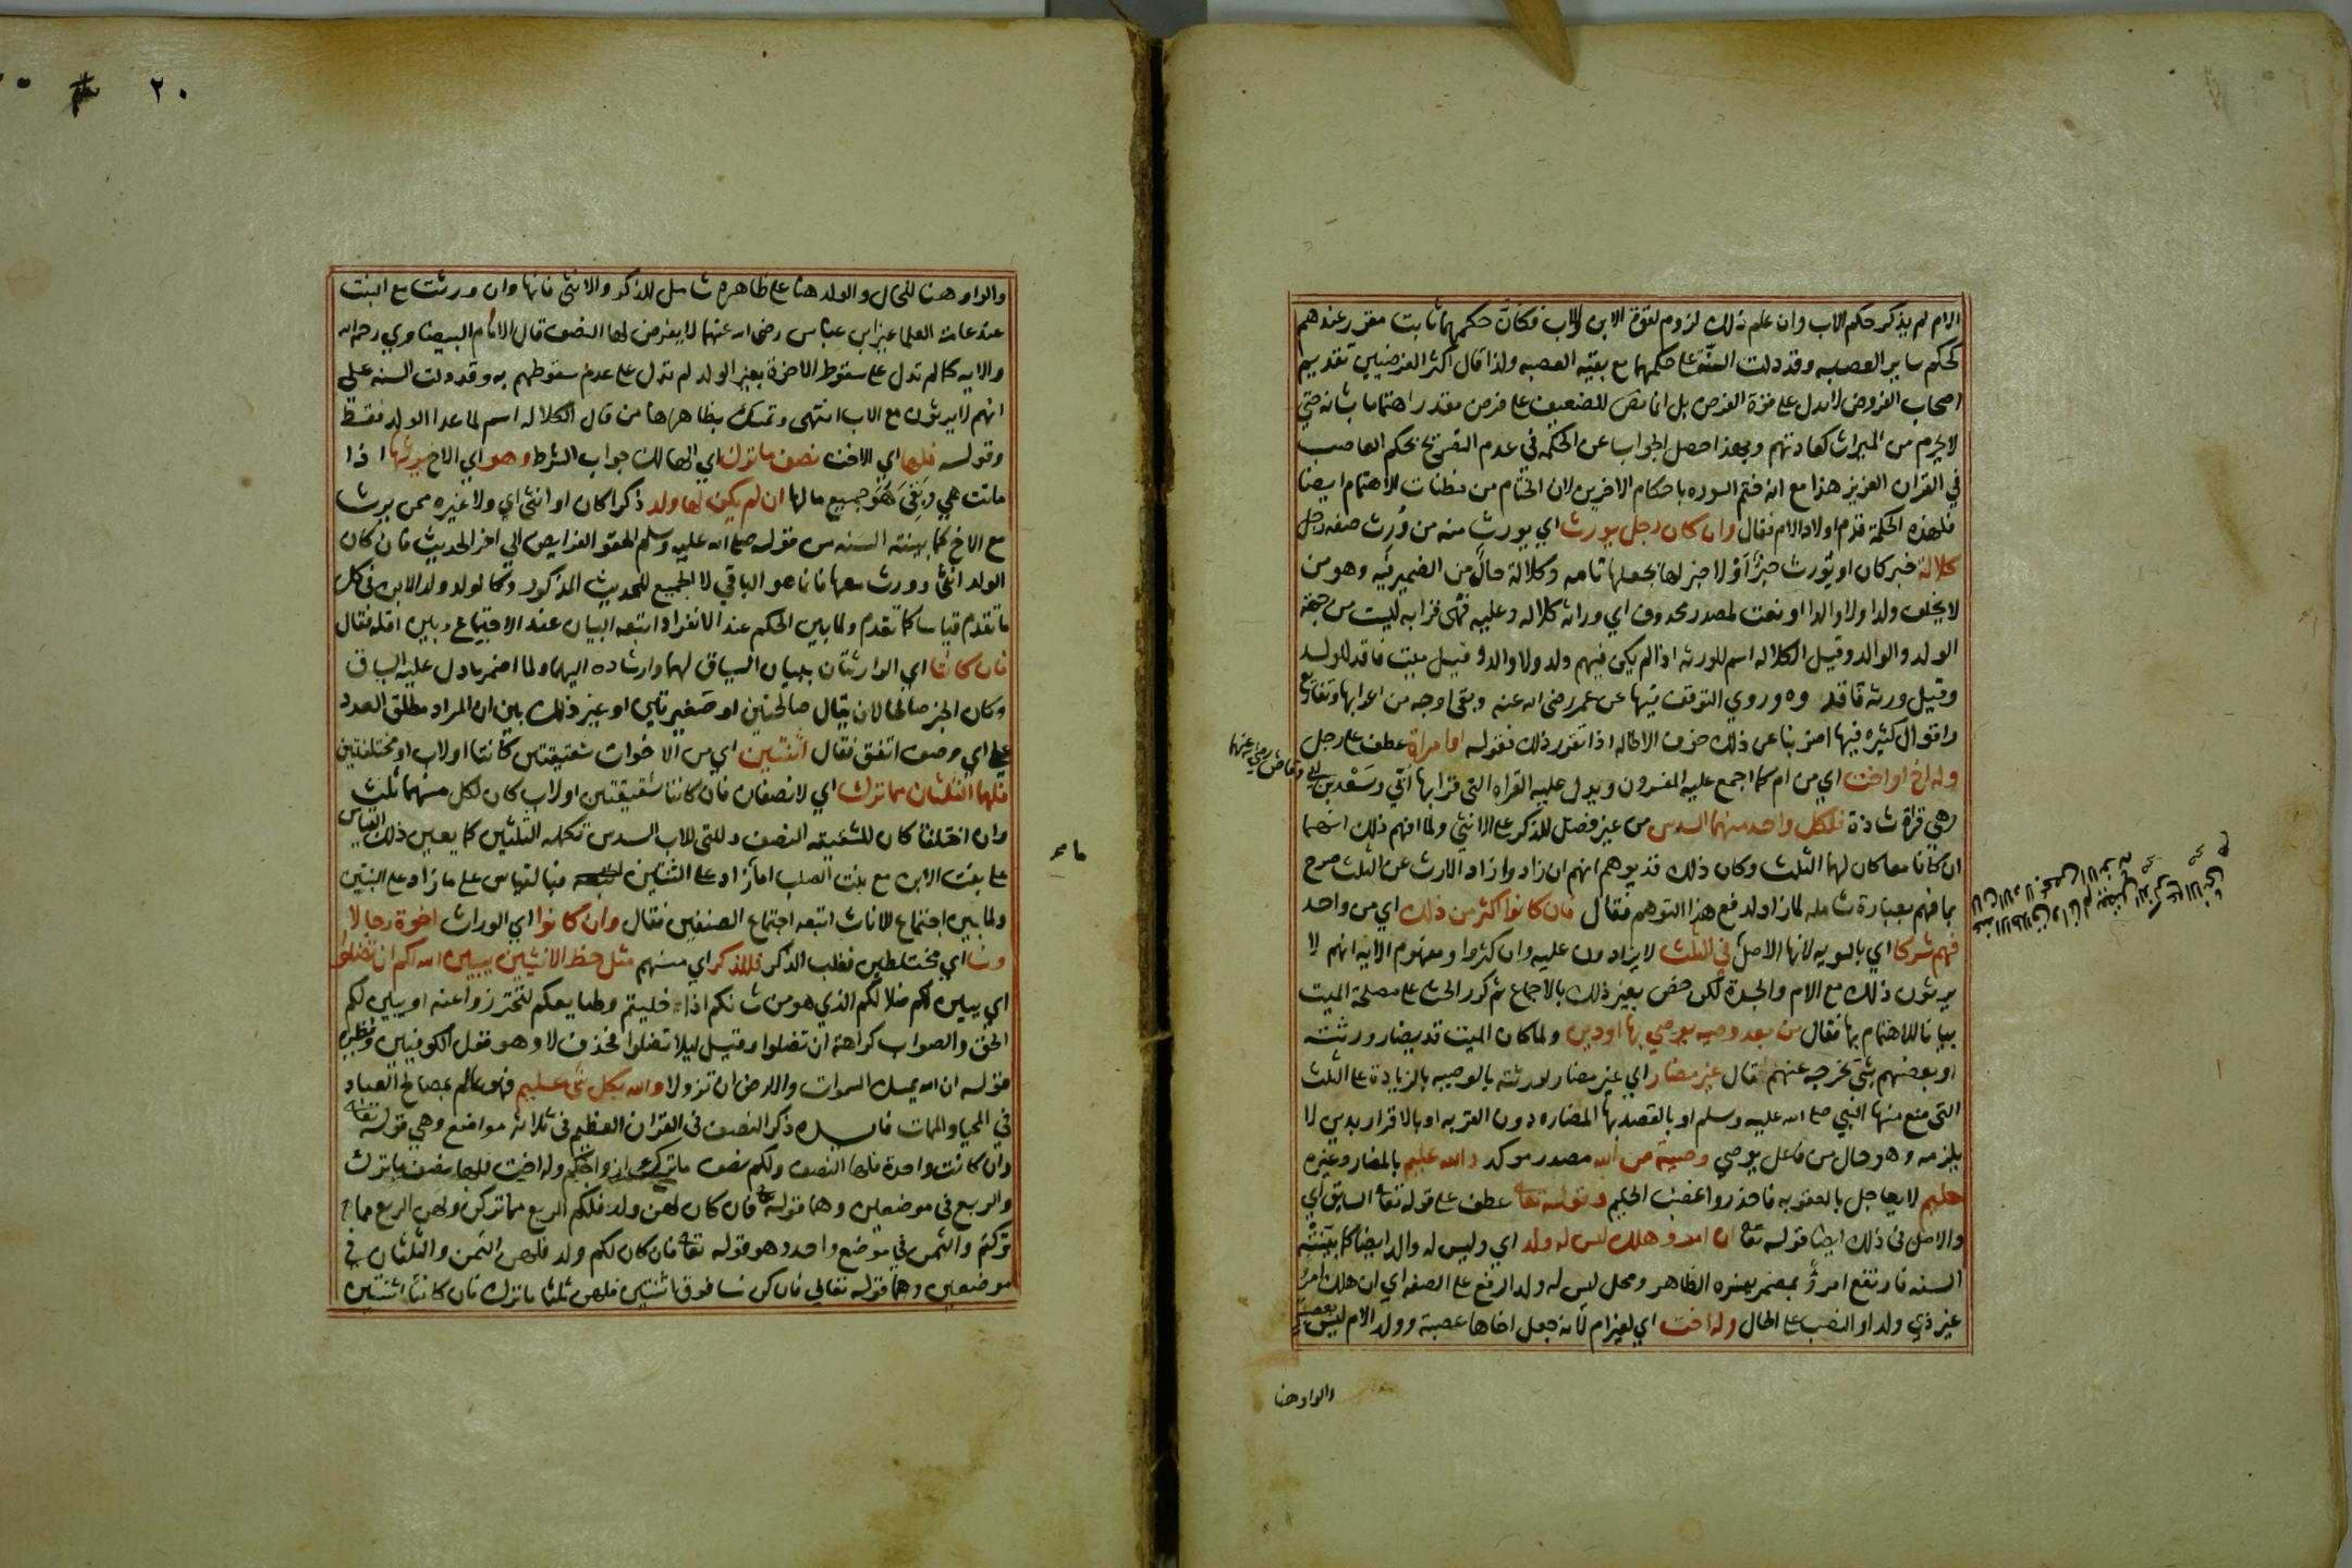 الام لم يذكر حكم الاب وان علم ذلك لزوم لقوة الابن والاب فكان حكمهما ثابت مقرر عندهم
كحكم ساير العصبه وقد دلت السنة على حكمهما مع بقيه العصبه ولذا قال اكثر الفرضيين تقديم
اصحاب الفروض لا يدل على قوة الفرض بل انما نص للضعيف على فرض مقدر اهتماما بشانه حتى
لا يحرم من الميراث كعادتهم وبهذا حصل الجواب عن الحكمه في عدم التصريح بحكم العاصب
في القران العزيز هذا مع انه ختم السوره باحكام الاخرين لان الختام من مظنات الاهتمام ايضا
فلهذه الحكمة قدم اولاد الام فقال وان كان رجل يورث اي يورث منه من ورث صفه رجل
كلالة خبر كان او يورث خبرا ولا خبر لها بجعلها تامه وكلالة حال من الضمير فيه وهو من
لا يخلف ولدا ولا والدا او نعت لمصدر محذوف اي وراثه كلاله وعليه فهي قرابه ليست من جهة
الولد والوالد وقيل الكلاله اسم للورثه اذا لم يكن فيهم ولد ولا والد وقيل ميت فاقد للولد
وقيل ورثه فاقد وروي التوقف فيها عن عمر رضي الله عنه وبقي اوجه من اعرابها وتفاريع
واقوال كثيره فيها اضربنا عن ذلك خوف الاطاله اذا تقرر ذلك فقوله او امراة عطف على رجل
وله اخ او اخت اي من ام كما اجمع عليه المفسرون ويدل عليه القراه التي قرا بها ابي وسعد بن ابي وقاص رضي عنهما
وهي قراة شاذة فلكل واحد منهما السدس من غير فضل للذكر على الانثى ولما افهم ذلك انهما
ان كانا معا كان لهما الثلث وكان ذلك قد يوهم انهم ان زادوا زاد الارث عن الثلث صرح
بما فهم بعبارة شامله لما زاد لدفع هذا التوهم فقال فان كانوا اكثر من ذلك اي من واحد
فهم شركا اي بالسويه لانها الاصل في الثلث لا يزادون عليه وان كثروا ومفهوم الايه انهم لا
يرثون ذلك مع الام والجدة لكن خص بغير ذلك بالاجماع ثم كرر الحث على مصلحة الميت
بيانا للاهتمام بها فقال من بعد وصيه يوصي بها او دين ولما كان الميت قد يضار ورثته
او بعضهم بشي يخرجه عنهم قال غير مضار اي غير مضار لورثته بالوصيه بالزيادة على الثلث
التي منع منها النبي صلى الله عليه وسلم او بالقصد بها المضاره دون القربه او بالاقرار بدين لا
يلزمه وهو حال من فاعل يوصي وصية من الله مصدر موكد والله عليم بالمضار وغيره
حليم لا يعاجل بالعقوبه فاحذروا غضب الحليم وقوله تعالى عطف على قوله تعالى السابق اي
والاصل في ذلك ايضا قوله تعالى ان امرؤ هلك ليس له ولد اي وليس له والد ايضا كما بينته
السنه فارتفع امرؤ بمضمر يفسره الظاهر ومحل ليس له ولد الرفع على الصفه اي ان هلك امرؤ
غير ذي ولد او النصب على الحال وله اخت اي لغير ام لانه جعل اخاها عصبة وولد الام ليس بعصبة
والواو هنا
٢٠
والواو هنا للحال والولد هنا على ظاهره شامل للذكر والانثى فانها وان ورثت مع البنت
عند عامة العلما غير ابن عباس رضي الله عنهما لا يفرض لها النصف قال الامام البيضاوي رحمه الله
والايه كما لم تدل على سقوط الاخوة بغير الولد لم تدل على عدم سقوطهم به وقد دلت السنه على
انهم لا يرثون مع الاب انتهى وتمسك بظاهرها من قال الكلاله اسم لما عدا الولد فقط
وقوله فلها اي الاخت نصف ما ترك اي الهالك جواب الشرط وهو اي الاخ يرثها اذا
ماتت هي وبقي هو جميع مالها ان لم يكن لها ولد ذكرا كان او انثى اي ولا غيره ممن يرث
مع الاخ كما بينته السنه من قوله صلى الله عليه وسلم الحقوا الفرايض الي اخر الحديث فان كان
الولد انثى وورث معها فانما هو الباقي لا الجميع للحديث المذكور وكالولد ولد الابن في كل
ما تقدم قياسا كما تقدم ولما بين الحكم عند الانفراد اتبعه البيان عند الاجتماع وبين اقله فقال
فان كانتا اي الوارثتان ببيان السياق لهما وارشاده اليهما ولما اضمر ما دل عليه السياق
وكان الخبر صالحا لان يقال صالحتين او صغيرتين او غير ذلك بين ان المراد مطلق العدد
على اي وصف اتفق فقال اثنتين اي من الاخوات شقيقتين كانتا او لاب او مختلفتين
فلهما الثلثان مما ترك اي لا نصفان فان كانتا شقيقتين او لاب كان لكل منهما ثلث
وان اختلفتا كان للشقيقه النصف وللتي للاب السدس تكمله الثلثين كما يعين ذلك القياس
على بنت الابن مع بنت الصلب اما زاد على الثنتين فبالقياس على ما زاد على البنتين
ولما بين اجتماع الاناث اتبعه اجتماع الصنفين فقال وان كانوا اي الوراث اخوة رجالا
ونسا اي مختلطين فغلب الذكر فللذكر اي منهم مثل حظ الانثيين يبين الله لكم ان تضلوا
اي يبين لكم ضلالكم الذي هو من شانكم اذا خليتم وطبايعكم لتحترزوا عنه او يبين لكم
الحق والصواب كراهة ان تضلوا وقيل ليلا تضلوا فحذف لا وهو قول الكوفيين ونظيره
قوله ان الله يمسك السموات والارض ان تزولا والله بكل شي عليم فهو عالم بمصالح العباد
في المحيا والممات فايده ذكر النصف في القران العظيم في ثلاثه مواضع وهي قوله تعالى
وان كانت واحدة فلها النصف ولكم نصف ما ترك ازواجكم وله اخت فلها نصف ما ترك
والربع في موضعين وهما قوله تعالى فان كان لهن ولد فلكم الربع مما تركن ولهن الربع مما
تركتم والثمن في موضع واحد وهو قوله تعالى فان كان لكم ولد فلهن الثمن والثلثان في
موضعين وهما قوله تعالى فان كن نسا فوق اثنتين فلهن ثلثا ما ترك فان كانتا اثنتين